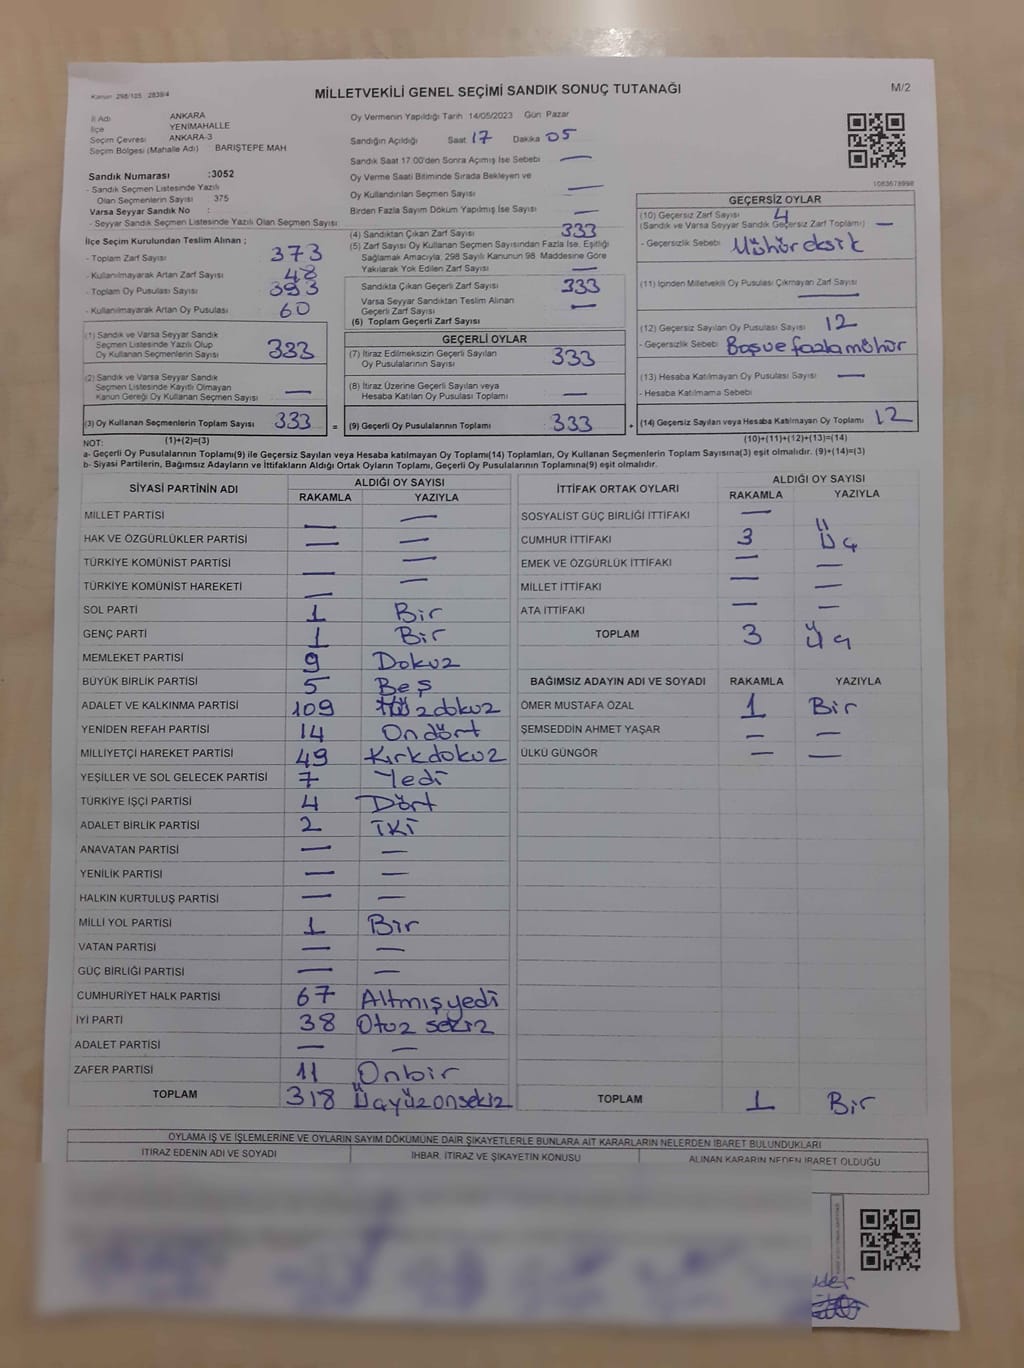 Kanun: 298/105 2839/4
MİLLETVEKİLİ GENEL SEÇİMİ SANDIK SONUÇ TUTANAĞI
M/2
İl Adı ANKARA
İlçe YENİMAHALLE
Seçim Çevresi ANKARA-3
Seçim Bölgesi (Mahalle Adı) BARIŞTEPE MAH
Sandık Numarası :3052
- Sandık Seçmen Listesinde Yazılı
Olan Seçmenlerin Sayısı 375
Varsa Seyyar Sandık No :
- Seyyar Sandık Seçmen Listesinde Yazılı Olan Seçmen Sayısı:
İlçe Seçim Kurulundan Teslim Alınan ;
- Toplam Zarf Sayısı 373
- Kullanılmayarak Artan Zarf Sayısı 48
- Toplam Oy Pusulası Sayısı 393
- Kullanılmayarak Artan Oy Pusulası 60
(1) Sandık ve Varsa Seyyar Sandık
Seçmen Listesinde Yazılı Olup
Oy Kullanan Seçmenlerin Sayısı 333
(2) Sandık ve Varsa Seyyar Sandık
Seçmen Listesinde Kayıtlı Olmayan
Kanun Gereği Oy Kullanan Seçmen Sayısı —
(3) Oy Kullanan Seçmenlerin Toplam Sayısı 333 =
Oy Vermenin Yapıldığı Tarih 14/05/2023 Gün: Pazar
Sandığın Açıldığı Saat 17 Dakika 05
Sandık Saat 17.00'den Sonra Açımış İse Sebebi —
Oy Verme Saati Bitiminde Sırada Bekleyen ve
Oy Kullandırılan Seçmen Sayısı —
Birden Fazla Sayım Döküm Yapılmış İse Sayısı —
(4) Sandıktan Çıkan Zarf Sayısı 333
(5) Zarf Sayısı Oy Kullanan Seçmen Sayısından Fazla İse, Eşitliği
Sağlamak Amacıyla, 298 Sayılı Kanunun 98. Maddesine Göre
Yakılarak Yok Edilen Zarf Sayısı —
Sandıkta Çıkan Geçerli Zarf Sayısı 333
Varsa Seyyar Sandıktan Teslim Alınan
Geçerli Zarf Sayısı —
(6) Toplam Geçerli Zarf Sayısı
GEÇERLİ OYLAR
(7) İtiraz Edilmeksizin Geçerli Sayılan
Oy Pusulalarının Sayısı 333
(8) İtiraz Üzerine Geçerli Sayılan veya
Hesaba Katılan Oy Pusulası Toplamı —
(9) Geçerli Oy Pusulalarının Toplamı 333 +
1083678998
GEÇERSİZ OYLAR
(10) Geçersiz Zarf Sayısı 4
(Sandık ve Varsa Seyyar Sandık Geçersiz Zarf Toplamı) —
- Geçersizlik Sebebi Mühür eksik
(11) İçinden Milletvekili Oy Pusulası Çıkmayan Zarf Sayısı
—
(12) Geçersiz Sayılan Oy Pusulası Sayısı 12
- Geçersizlik Sebebi Boş ve fazla mühür
(13) Hesaba Katılmayan Oy Pusulası Sayısı —
- Hesaba Katılmama Sebebi
(14) Geçersiz Sayılan veya Hesaba Katılmayan Oy Toplamı 12
NOT: (1)+(2)=(3) (10)+(11)+(12)+(13)=(14)
a- Geçerli Oy Pusulalarının Toplamı(9) ile Geçersiz Sayılan veya Hesaba katılmayan Oy Toplamı(14) Toplamları, Oy Kullanan Seçmenlerin Toplam Sayısına(3) eşit olmalıdır. (9)+(14)=(3)
b- Siyasi Partilerin, Bağımsız Adayların ve İttifakların Aldığı Ortak Oyların Toplamı, Geçerli Oy Pusulalarının Toplamına(9) eşit olmalıdır.
SİYASİ PARTİNİN ADI ALDIĞI OY SAYISI
RAKAMLA YAZIYLA
MİLLET PARTİSİ — —
HAK VE ÖZGÜRLÜKLER PARTİSİ — —
TÜRKİYE KOMÜNİST PARTİSİ — —
TÜRKİYE KOMÜNİST HAREKETİ — —
SOL PARTİ 1 Bir
GENÇ PARTİ 1 Bir
MEMLEKET PARTİSİ 9 Dokuz
BÜYÜK BİRLİK PARTİSİ 5 Beş
ADALET VE KALKINMA PARTİSİ 109 Yüzdokuz
YENİDEN REFAH PARTİSİ 14 Ondört
MİLLİYETÇİ HAREKET PARTİSİ 49 Kırkdokuz
YEŞİLLER VE SOL GELECEK PARTİSİ 7 Yedi
TÜRKİYE İŞÇİ PARTİSİ 4 Dört
ADALET BİRLİK PARTİSİ 2 İki
ANAVATAN PARTİSİ — —
YENİLİK PARTİSİ — —
HALKIN KURTULUŞ PARTİSİ — —
MİLLİ YOL PARTİSİ 1 Bir
VATAN PARTİSİ — —
GÜÇ BİRLİĞİ PARTİSİ — —
CUMHURİYET HALK PARTİSİ 67 Altmışyedi
İYİ PARTİ 38 Otuz sekiz
ADALET PARTİSİ — —
ZAFER PARTİSİ 11 Onbir
TOPLAM 318 Üçyüzonsekiz
İTTİFAK ORTAK OYLARI ALDIĞI OY SAYISI
RAKAMLA YAZIYLA
SOSYALİST GÜÇ BİRLİĞİ İTTİFAKI —
CUMHUR İTTİFAKI 3 Üç
EMEK VE ÖZGÜRLÜK İTTİFAKI — —
MİLLET İTTİFAKI — —
ATA İTTİFAKI — —
TOPLAM 3 Üç
BAĞIMSIZ ADAYIN ADI VE SOYADI RAKAMLA YAZIYLA
ÖMER MUSTAFA ÖZAL 1 Bir
ŞEMSEDDİN AHMET YAŞAR — —
ÜLKÜ GÜNGÖR — —
TOPLAM 1 Bir
OYLAMA İŞ VE İŞLEMLERİNE VE OYLARIN SAYIM DÖKÜMÜNE DAİR ŞİKAYETLERLE BUNLARA AİT KARARLARIN NELERDEN İBARET BULUNDUKLARI
İTİRAZ EDENİN ADI VE SOYADI İHBAR, İTİRAZ VE ŞİKAYETİN KONUSU ALINAN KARARIN NEDEN İBARET OLDUĞU